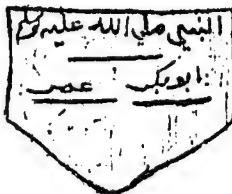 النبي صلي الله عليه وسلم
ابوبكر عمر